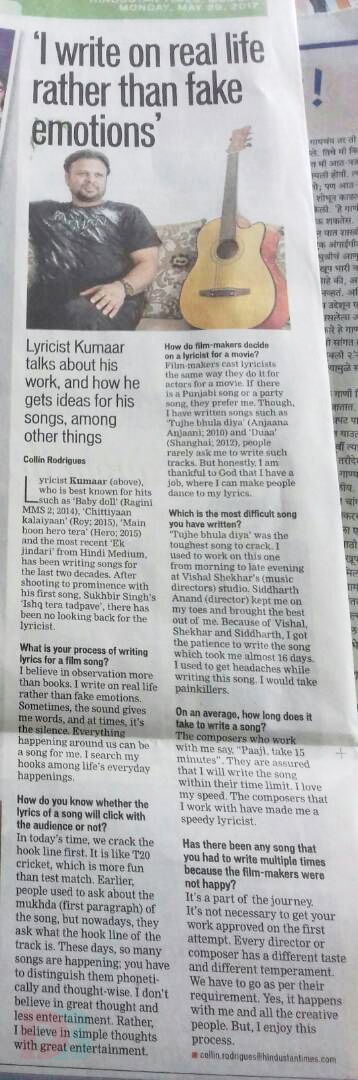 MONDAY, MAY 29, 2017
'I write on real life
rather than fake
emotions'
!
Lyricist Kumaar
talks about his
work, and how he
gets ideas for his
songs, among
other things
Collin Rodrigues
Lyricist Kumaar (above),
who is best known for hits
such as 'Baby doll' (Ragini
MMS 2; 2014), 'Chittiyaan
kalaiyaan' (Roy; 2015), 'Main
hoon hero tera' (Hero; 2015)
and the most recent 'Ek
jindari' from Hindi Medium,
has been writing songs for
the last two decades. After
shooting to prominence with
his first song, Sukhbir Singh's
'Ishq tera tadpave', there has
been no looking back for the
lyricist.
What is your process of writing
lyrics for a film song?
I believe in observation more
than books. I write on real life
rather than fake emotions.
Sometimes, the sound gives
me words, and at times, it's
the silence. Everything
happening around us can be
a song for me. I search my
hooks among life's everyday
happenings.
How do you know whether the
lyrics of a song will click with
the audience or not?
In today's time, we crack the
hook line first. It is like T20
cricket, which is more fun
than test match. Earlier,
people used to ask about the
mukhda (first paragraph) of
the song, but nowadays, they
ask what the hook line of the
track is. These days, so many
songs are happening; you have
to distinguish them phoneti-
cally and thought-wise. I don't
believe in great thought and
less entertainment. Rather,
I believe in simple thoughts
with great entertainment.
How do film-makers decide
on a lyricist for a movie?
Film-makers cast lyricists
the same way they do it for
actors for a movie. If there
is a Punjabi song or a party
song, they prefer me. Though,
I have written songs such as
'Tujhe bhula diya' (Anjaana
Anjaani; 2010) and 'Duaa'
(Shanghai; 2012), people
rarely ask me to write such
tracks. But honestly, I am
thankful to God that I have a
job, where I can make people
dance to my lyrics.
Which is the most difficult song
you have written?
'Tujhe bhula diya' was the
toughest song to crack. I
used to work on this one
from morning to late evening
at Vishal Shekhar's (music
directors) studio. Siddharth
Anand (director) kept me on
my toes and brought the best
out of me. Because of Vishal,
Shekhar and Siddharth, I got
the patience to write the song
which took me almost 16 days.
I used to get headaches while
writing this song. I would take
painkillers.
On an average, how long does it
take to write a song?
The composers who work
with me say, "Paaji, take 15
minutes". They are assured
that I will write the song
within their time limit. I love
my speed. The composers that
I work with have made me a
speedy lyricist.
Has there been any song that
you had to write multiple times
because the film-makers were
not happy?
It's a part of the journey.
It's not necessary to get your
work approved on the first
attempt. Every director or
composer has a different taste
and different temperament.
We have to go as per their
requirement. Yes, it happens
with me and all the creative
people. But, I enjoy this
process.
collin.rodrigues@hindustantimes.com